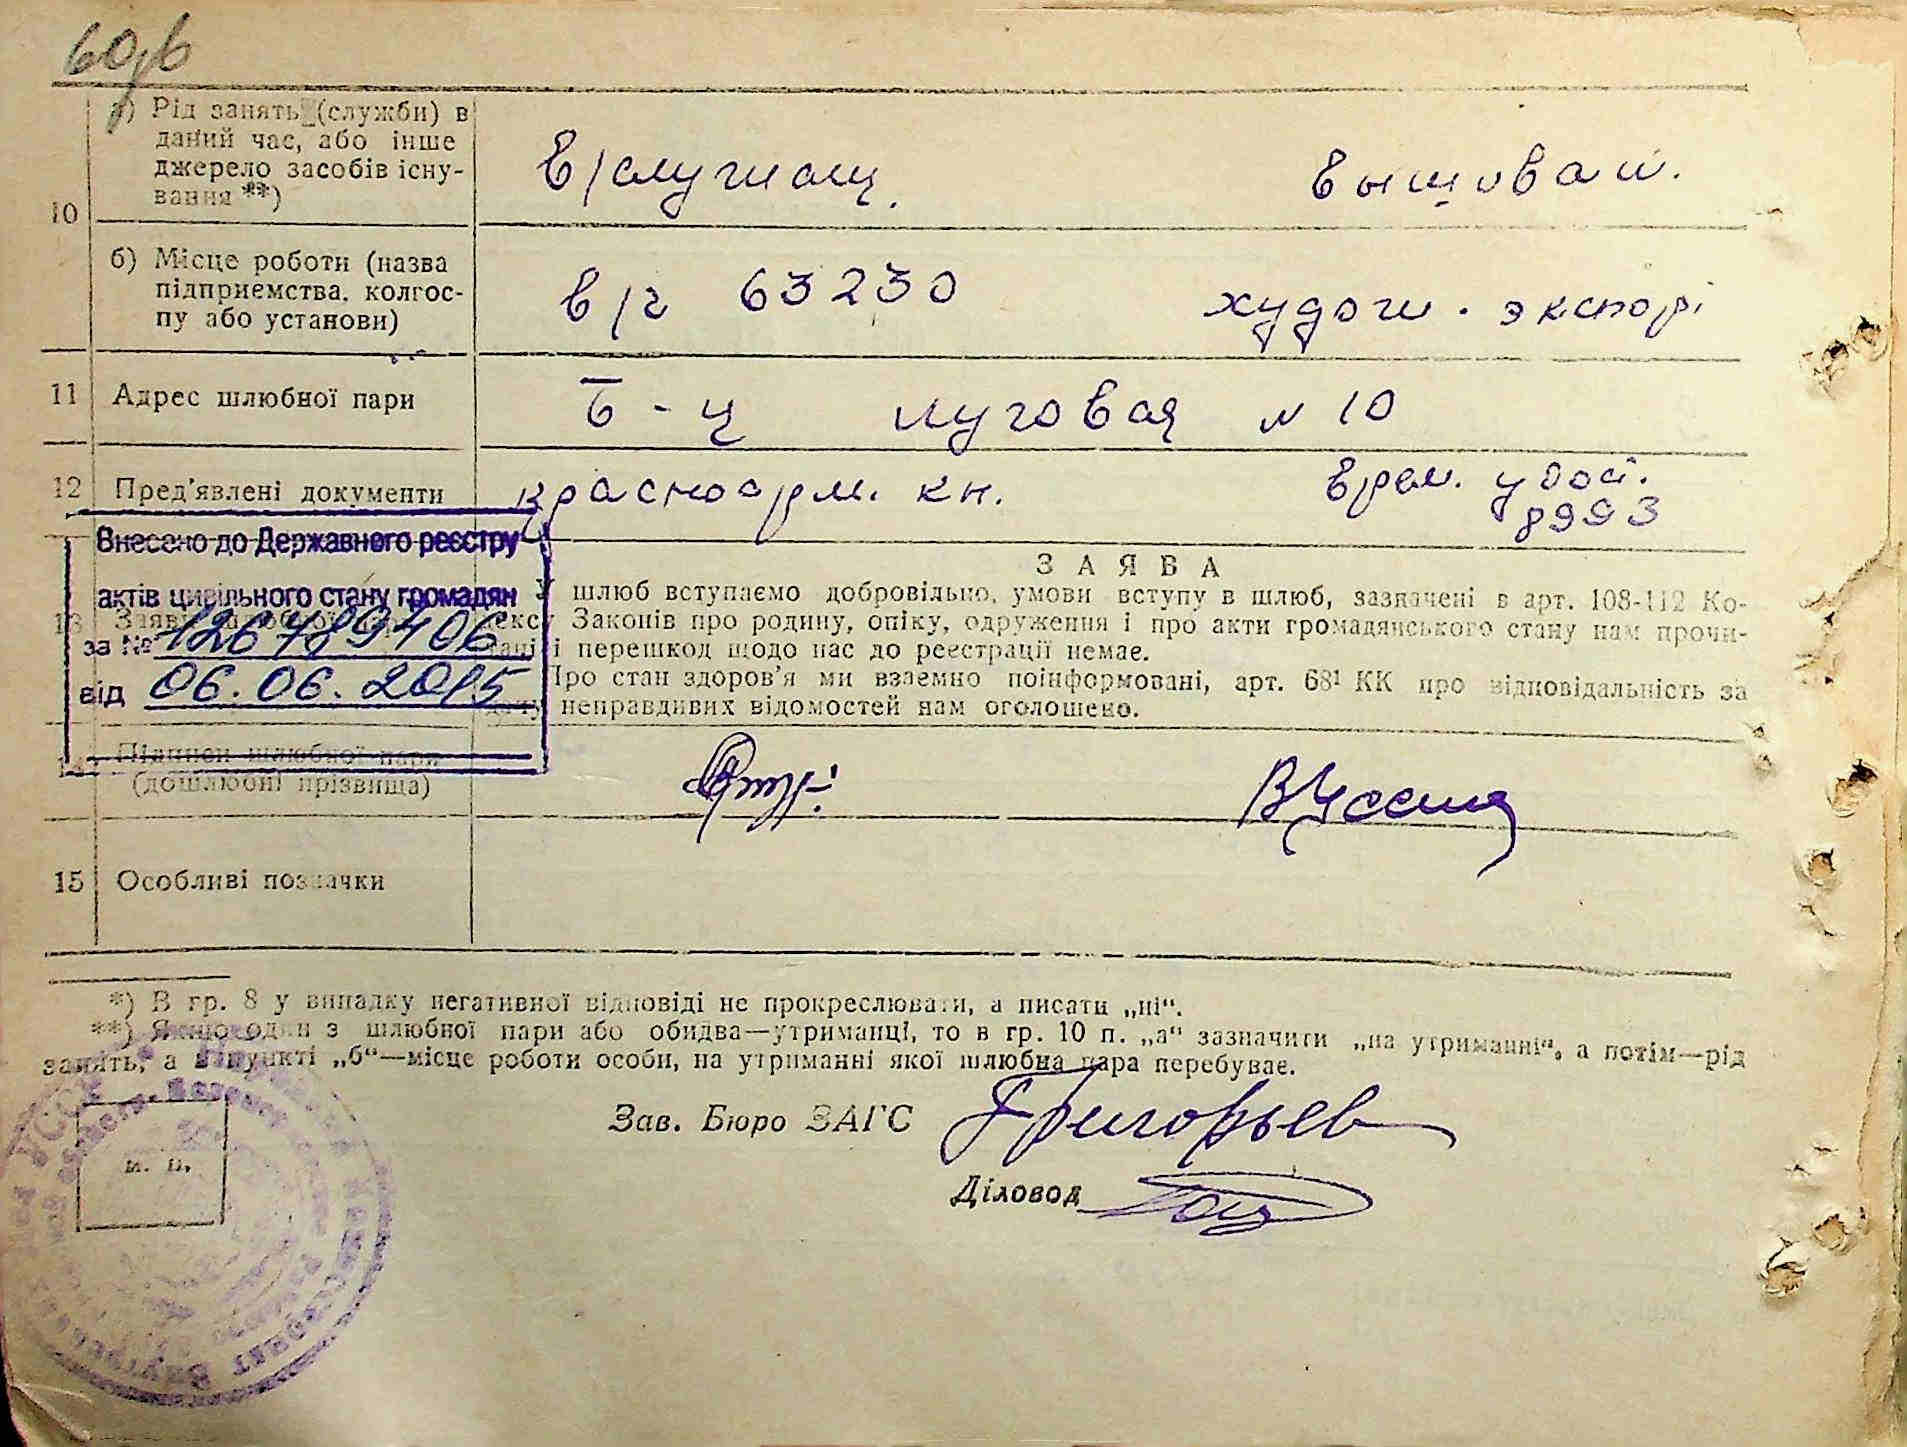 60об
10
а) Рід занять (служби) в
даний час, або інше
джерело засобів існу-
вання **)
в/служащ.
вышивал.
б) Місце роботи (назва
підприємства, колгос-
пу або установи)
в/ч 63230
худож. экспорт
11 Адрес шлюбної пари
Б-ц луговая № 10
12 Пред'явлені документи
красноарм. кн.
врем. удост.
8993
Внесено до Державного реєстру
актів цивільного стану громадян
за №
від 06.06.2015
13
ЗАЯВА
У шлюб вступаємо добровільно, умови вступу в шлюб, зазначені в арт. 108-112 Ко-
дексу Законів про родину, опіку, одруження і про акти громадянського стану нам прочи-
тані і перешкод щодо нас до реєстрації немає.
Про стан здоров'я ми взаємно поінформовані, арт. 68¹ КК про відповідальність за
дачу неправдивих відомостей нам оголошено.
14 Підписи шлюбної пари
(дошлюбні прізвища)
15 Особливі позначки
*) В гр. 8 у випадку негативної відповіді не прокреслювати, а писати „ні“.
**) Якщо один з шлюбної пари або обидва—утриманці, то в гр. 10 п. „а“ зазначити „на утриманні“, а потім—рід
занять, а в пункті „б“—місце роботи особи, на утриманні якої шлюбна пара перебуває.
Зав. Бюро ЗАГС Григорьев
Діловод
м. п.